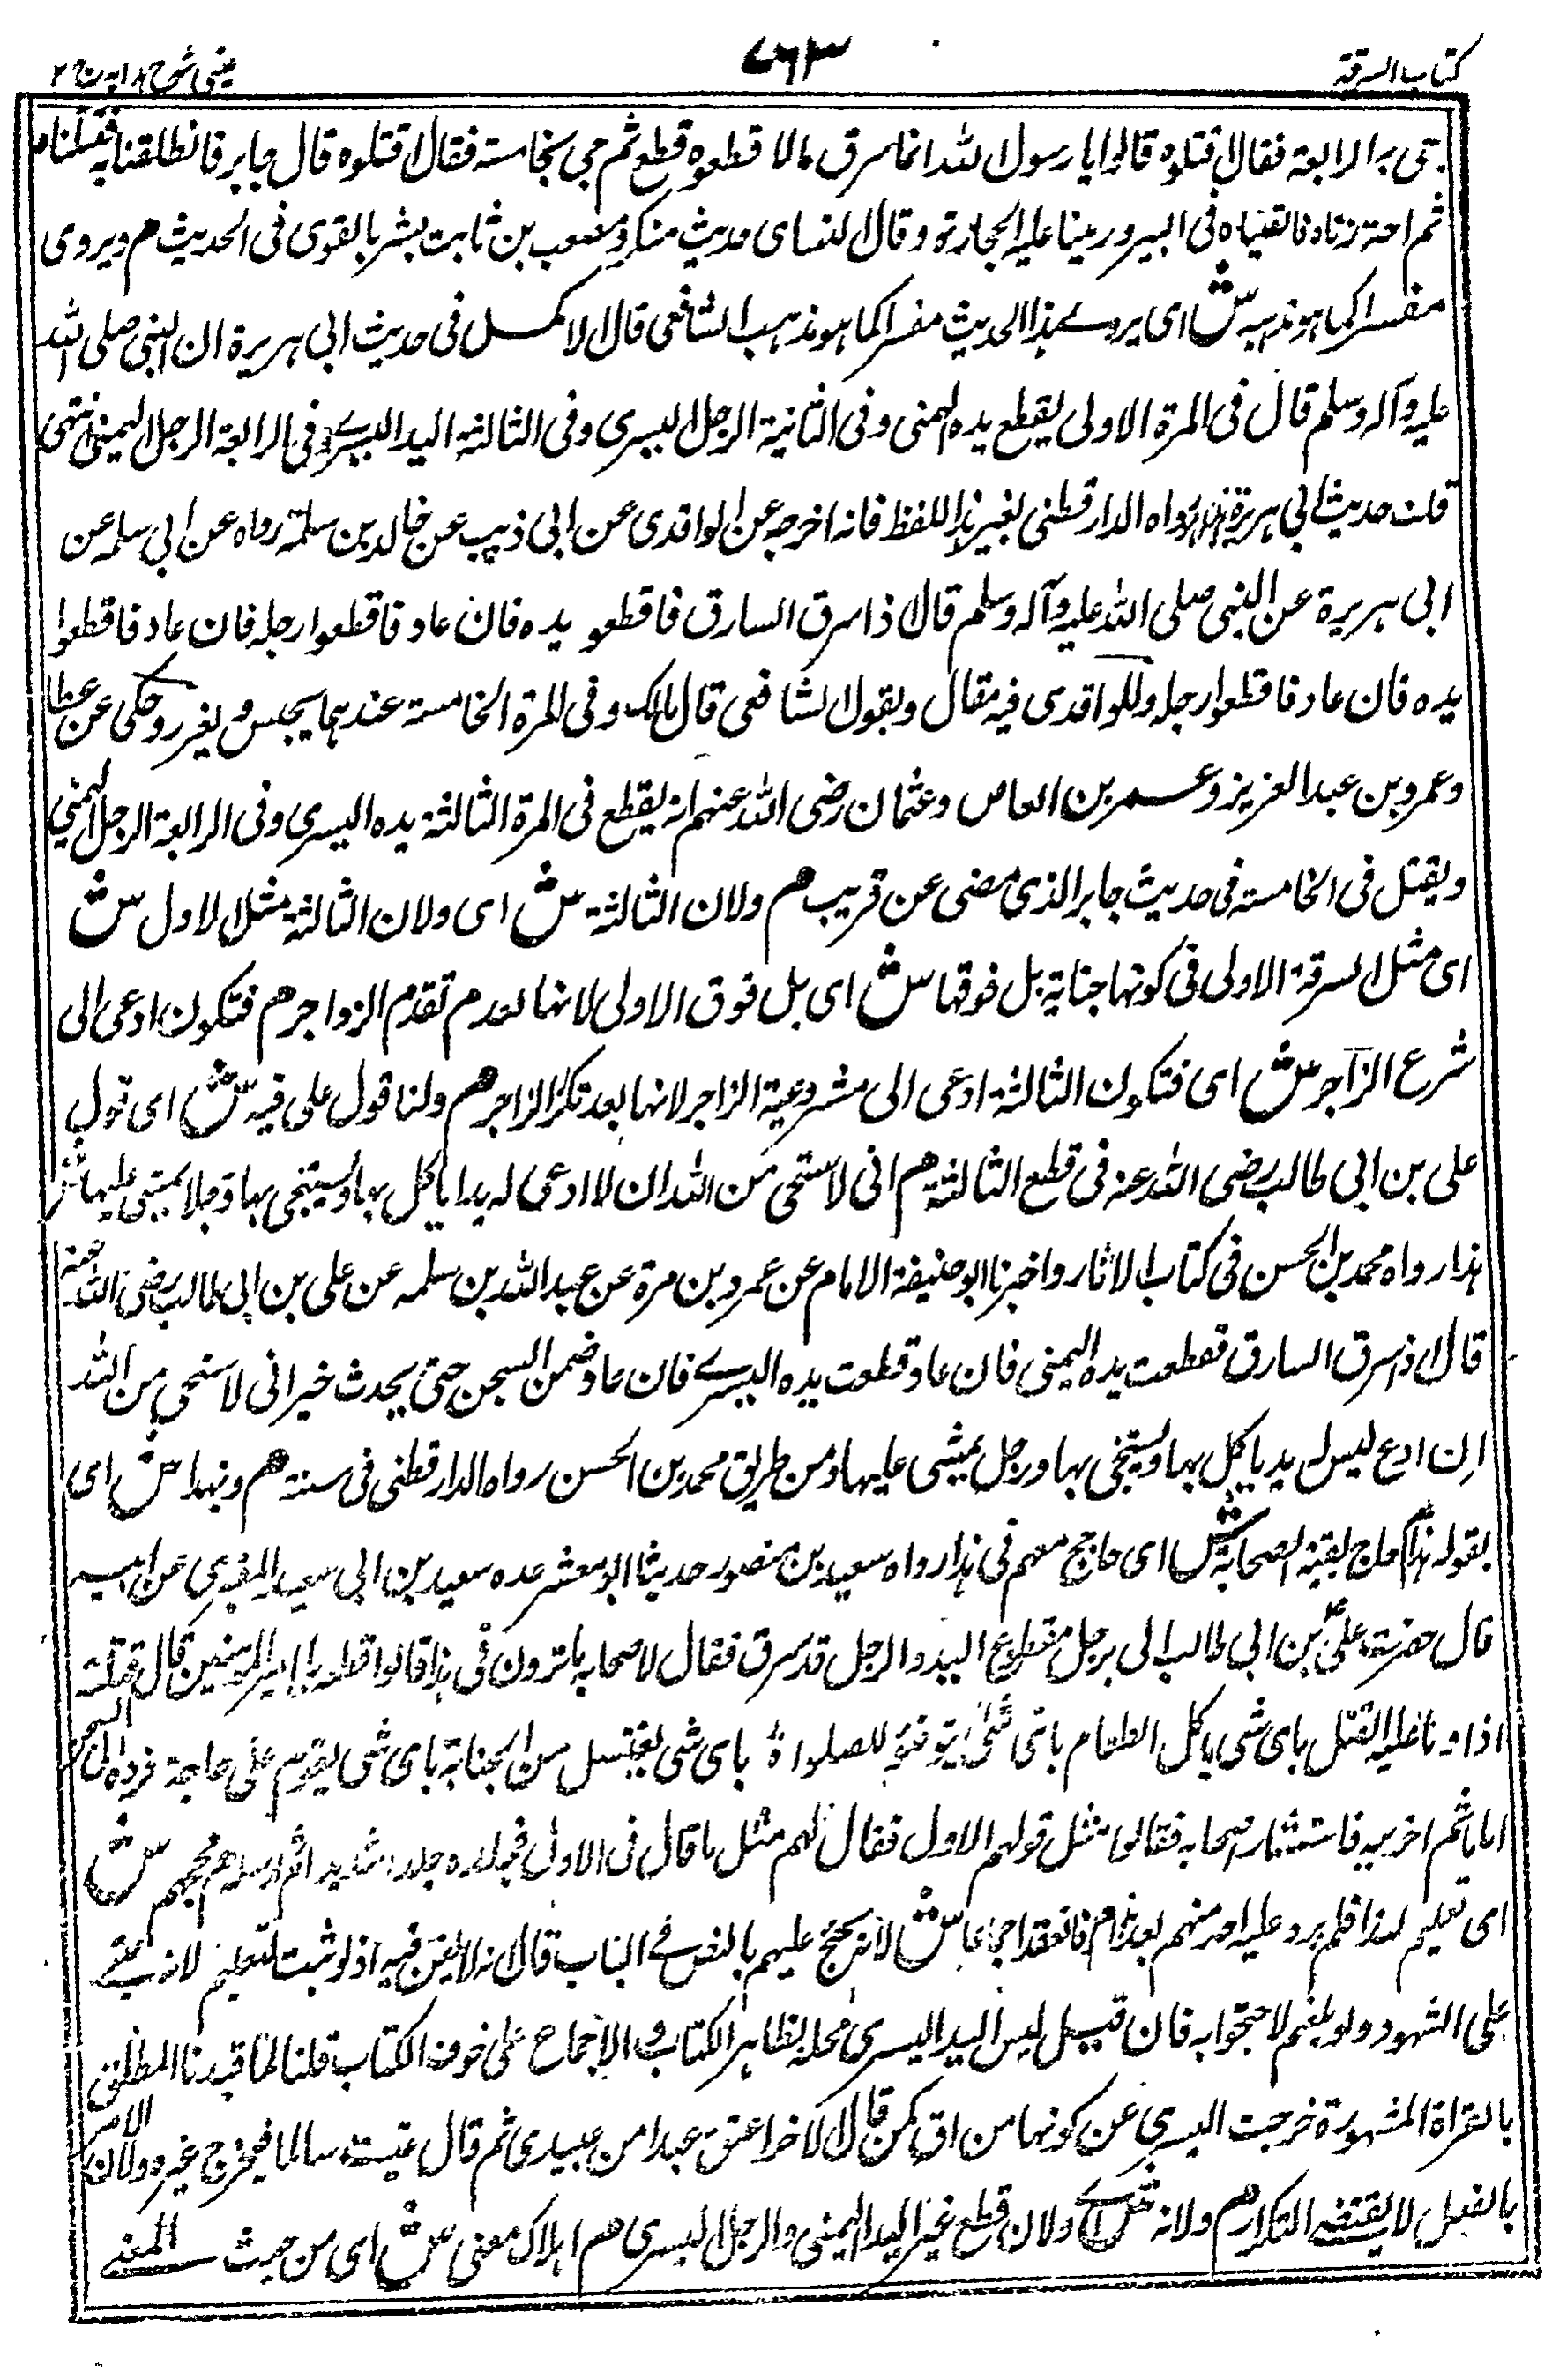 كتاب السرقة
٧٦٣
عينى شرح هدايه ج ٢
جئ به الرابعة فقال اقتلوه قالوا يا رسول الله انما سرق مالا قطعوه قطع ثم جى بخامسته فقال اقتلوه قال جابر فانطلقنا به فقتلناه
ثم اجتررناه فالقيناه فى البير ورمينا عليه الحجارة وقال النساى حديث منكر ومصعب بن ثابت بشر بالقوى فى الحديث م ويروى
مفسرا كما هو مذهبه ش اى يروے هذا الحديث مفسرا كما هو مذهب الشافعى قال الاكمل فى حديث ابى هريرة ان النبى صلى الله
عليه وآله وسلم قال فى المرة الاولى يقطع يده اليمنى وفى الثانية الرجل اليسرى وفى الثالثة اليد اليسرے وفى الرابعة الرجل اليمنى انتهى
قلت حديث ابى هريرة هذا رواه الدارقطنى بغير هذا اللفظ فانه اخرجه عن الواقدى عن ابى ذيب عن خالد بن سلمة رواه عن ابى سلمه عن
ابى هريرة عن النبى صلى الله عليه وآله وسلم قال اذا سرق السارق فاقطعو يده فان عاد فاقطعوا رجله فان عاد فاقطعوا
يده فان عاد فاقطعوا رجله وللواقدى فيه مقال وبقول الشافعى قال مالك وفى المرة الخامسته عندهما يحبس ويغرر وحكى عن عطا
وعمرو بن عبد العزيز وعمر بن العاص وعثمان رضى الله عنهم انه يقطع فى المرة الثالثة يده اليسرى وفى الرابعة الرجل اليمنى
ويقتل فى الخامسته فى حديث جابر الذى مضى عن قريب م ولان الثالثة ش اى ولان الثالثة مثل الاول ش
اى مثل السرقة الاولى فى كونها جناية بل فوقها ش اى بل فوق الاولى لانها لعدم تقدم الزواجر م فتكون ادعى الى
شرع الزاجر ش اى فتكون الثالثة ادعى الى مشروعية الزاجر لانها بعد تكرر الزاجر م ولنا قول على فيه ش اى قول
على بن ابى طالب رضى الله عنه فى قطع الثالثة م انى لاستحى من الله ان لا ادعى له يدا ياكل بها ويستنجى بها ورجلا يمشى عليها ش
هذا رواه محمد بن الحسن فى كتاب الاثار واخبرنا ابو حنيفة الامام عن عمرو بن مرة عن عبد الله بن سلمه عن على بن ابى طالب رضى الله عنه
قال اذا سرق السارق قطعت يده اليمنى فان عاد قطعت يده اليسرے فان عاد ضمن السجن حتى يحدث خيرا انى لاستحى من الله
ان ادع ليس له يد ياكل بها ويستنجى بها ورجل يمشى عليها ومن طريق محمد بن الحسن رواه الدارقطنى فى سننه م وبهذا ش اى
بقوله هذا م حاج بقية الصحابة ش اى حاجج معهم فى هذا رواه سعيد بن منصور حديثا ابو معشر عده سعيد بن ابى سعيد المقبرى عن ابيه
قال حضرت على بن ابى طالب اتى برجل مقطوع اليد والرجل قد سرق فقال لاصحابه ماترون فى هذا قالوا اقطعه يا امير المومنين قال قتلته
اذا وما عليه القتل باى شى ياكل الطعام باى شئ يتوضؤ للصلواة باى شى يغتسل من الجنابة باى شى يقوم على حاجة فرده الى السجن
اياما ثم اخرجه فاستشار اصحابه فقالوا مثل قولهم الاول فقال لهم مثل ما قال فى الاولى فجلده جلدا شديدا ثم ارسله م فحجهم ش
اى تعليم لهذا فلم يرد عليه احد منهم بعد هذا م فانعقد اجماعا ش لانه يحتج عليهم بالنص فى الباب قال انه لا يغنى فيه اذ لو ثبت لتعليم لانه يبقى
على الشهود ولو بلغهم لاحتجوا به فان قيل ليس اليد اليسرى محله لظاهر الكتاب والاجماع على خوف الكتاب قلنا لما قيدنا المطلق
بالقراة المشهورة خرجت اليسرى عن كونها من اق كمن قال لاخر اعتق عبدا من عبيدى ثم قال عنيت سالما فيخرج غيره ولان الامر
بالفعل لا يقتضى التكرار م ولانه ش اے ولان قطع غير اليد اليمنى والرجل اليسرى م اهلاك معنى ش اى من حيث المعنے